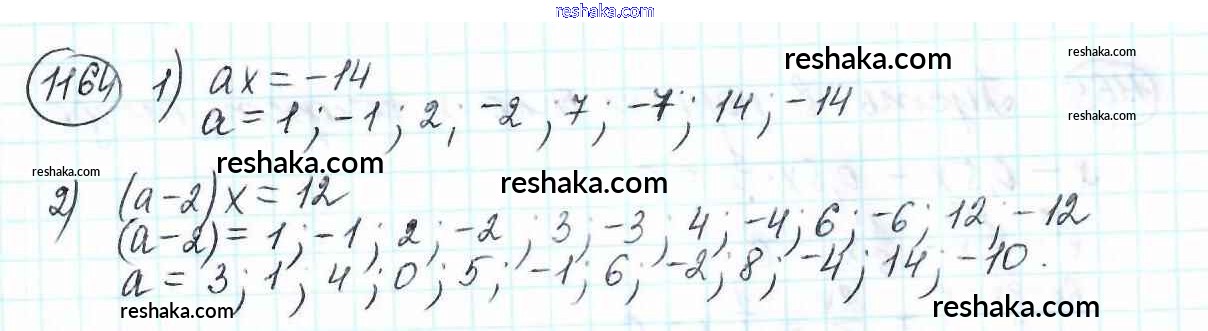 reshaka.com
1164 1) ax = -14
reshaka.com
reshaka.com
a = 1; -1; 2, -2; 7; -7; 14; -14
reshaka.com
reshaka.com
reshaka.com
reshaka.com
2) (a-2)x = 12
(a-2) = 1; -1; 2; -2; 3; -3; 4; -4; 6; -6; 12; -12
a = 3; 1; 4; 0; 5; -1; 6; -2; 8; -4; 14; -10.
reshaka.com
reshaka.com